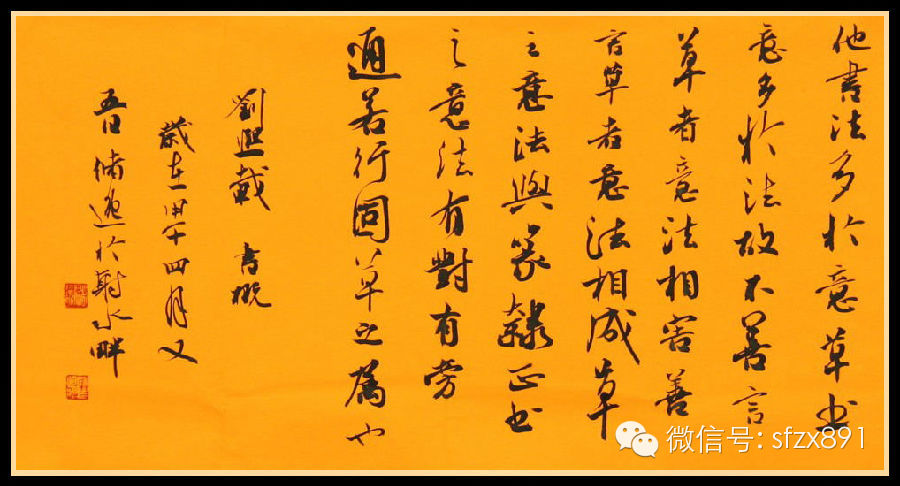 他書法多於意草书
意多於法故不善言
草者意法相害善
言草者意法相成草
之意法與篆隸正书
之意法有對有旁
通若行固草之屬也
劉熙載 書概
歲在甲午四月又
五日 於射水畔
微信号: sfzx891